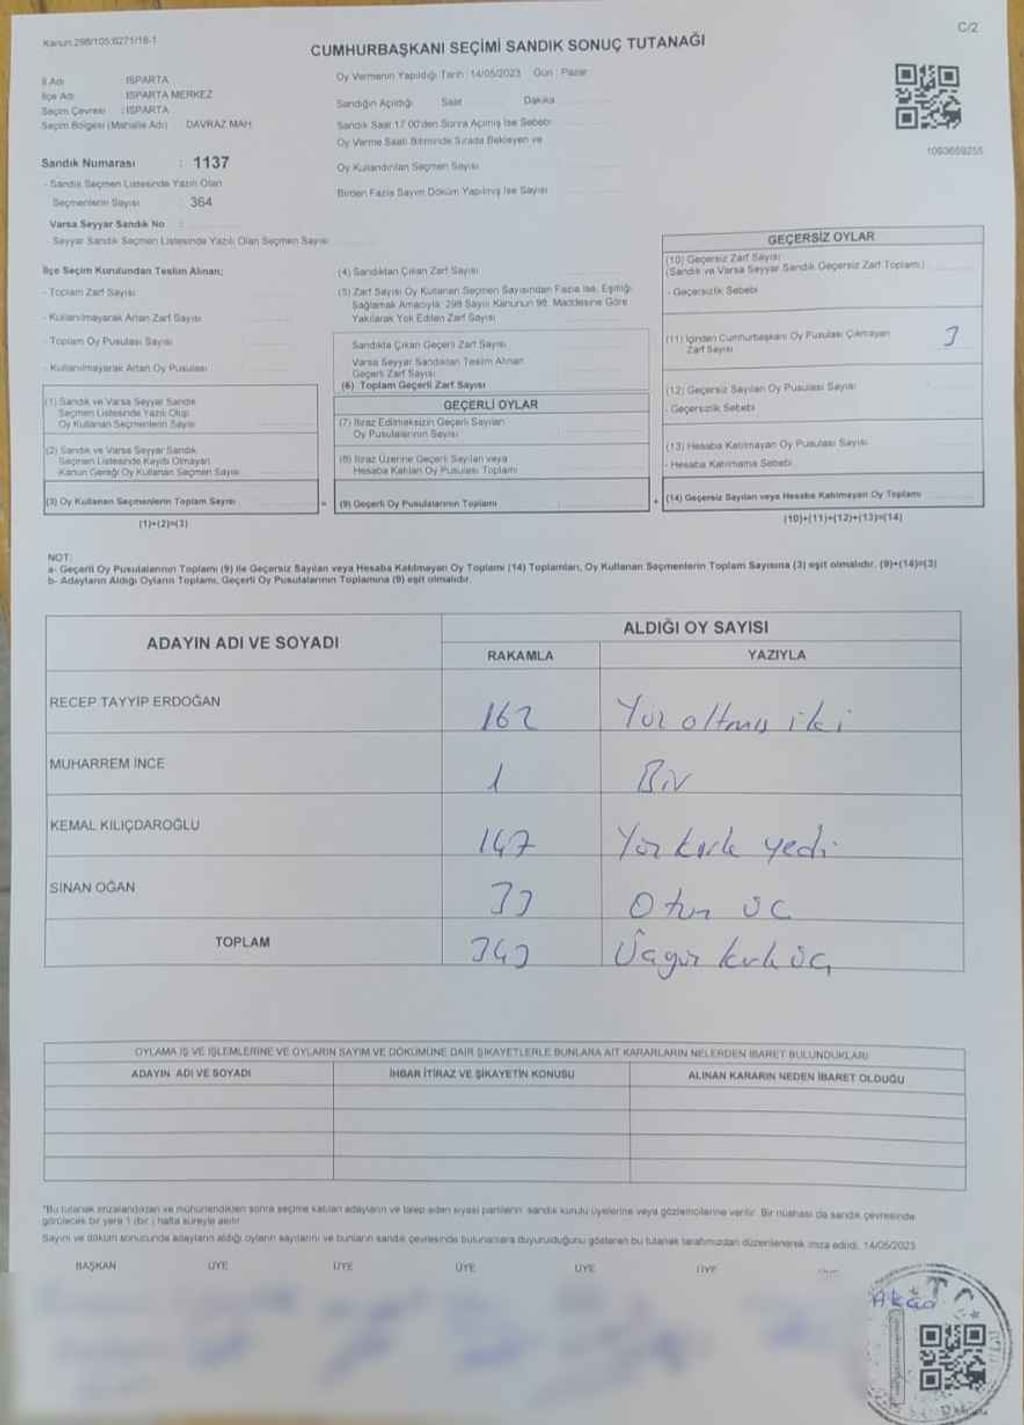 Kanun:298/105;6271/18-1
C/2
CUMHURBAŞKANI SEÇİMİ SANDIK SONUÇ TUTANAĞI
İl Adı : ISPARTA
İlçe Adı : ISPARTA MERKEZ
Seçim Çevresi : ISPARTA
Seçim Bölgesi (Mahalle Adı) : DAVRAZ MAH.
Oy Vermenin Yapıldığı Tarih : 14/05/2023 Gün : Pazar
Sandığın Açıldığı Saat Dakika
Sandık Saat 17:00'den Sonra Açılmış İse Sebebi
Oy Verme Saati Bitiminde Sırada Bekleyen ve
Oy Kullandırılan Seçmen Sayısı
Birden Fazla Sayım Döküm Yapılmış İse Sayısı
1093659255
Sandık Numarası : 1137
- Sandık Seçmen Listesinde Yazılı Olan
Seçmenlerin Sayısı 364
Varsa Seyyar Sandık No :
- Seyyar Sandık Seçmen Listesinde Yazılı Olan Seçmen Sayısı
İlçe Seçim Kurulundan Teslim Alınan;
- Toplam Zarf Sayısı
- Kullanılmayarak Artan Zarf Sayısı
- Toplam Oy Pusulası Sayısı
- Kullanılmayarak Artan Oy Pusulası
(1) Sandık ve Varsa Seyyar Sandık
Seçmen Listesinde Yazılı Olup
Oy Kullanan Seçmenlerin Sayısı
(2) Sandık ve Varsa Seyyar Sandık
Seçmen Listesinde Kaydı Olmayan
Kanun Gereği Oy Kullanan Seçmen Sayısı
(3) Oy Kullanan Seçmenlerin Toplam Sayısı
(1)+(2)=(3)
(4) Sandıktan Çıkan Zarf Sayısı
(5) Zarf Sayısı Oy Kullanan Seçmen Sayısından Fazla İse, Eşitliği
Sağlamak Amacıyla, 298 Sayılı Kanunun 98. Maddesine Göre
Yakılarak Yok Edilen Zarf Sayısı
Sandıkta Çıkan Geçerli Zarf Sayısı
Varsa Seyyar Sandıktan Teslim Alınan
Geçerli Zarf Sayısı
(6) Toplam Geçerli Zarf Sayısı
GEÇERLİ OYLAR
(7) İtiraz Edilmeksizin Geçerli Sayılan
Oy Pusulalarının Sayısı
(8) İtiraz Üzerine Geçerli Sayılan veya
Hesaba Katılan Oy Pusulası Toplamı
= (9) Geçerli Oy Pusulalarının Toplamı
GEÇERSİZ OYLAR
(10) Geçersiz Zarf Sayısı
(Sandık ve Varsa Seyyar Sandık Geçersiz Zarf Toplamı)
- Geçersizlik Sebebi
(11) İçinden Cumhurbaşkanı Oy Pusulası Çıkmayan
Zarf Sayısı 3
(12) Geçersiz Sayılan Oy Pusulası Sayısı
- Geçersizlik Sebebi
(13) Hesaba Katılmayan Oy Pusulası Sayısı
- Hesaba Katılmama Sebebi
+ (14) Geçersiz Sayılan veya Hesaba Katılmayan Oy Toplamı
(10)+(11)+(12)+(13)=(14)
NOT:
a- Geçerli Oy Pusulalarının Toplamı (9) ile Geçersiz Sayılan veya Hesaba Katılmayan Oy Toplamı (14) Toplamları, Oy Kullanan Seçmenlerin Toplam Sayısına (3) eşit olmalıdır. (9)+(14)=(3)
b- Adayların Aldığı Oyların Toplamı, Geçerli Oy Pusulalarının Toplamına (9) eşit olmalıdır.
ADAYIN ADI VE SOYADI
ALDIĞI OY SAYISI
RAKAMLA YAZIYLA
RECEP TAYYİP ERDOĞAN 162 Yüz altmış iki
MUHARREM İNCE 1 Bir
KEMAL KILIÇDAROĞLU 147 Yüz kırk yedi
SİNAN OĞAN 33 Otuz üç
TOPLAM 343 Üçyüz kırk üç
OYLAMA İŞ VE İŞLEMLERİNE VE OYLARIN SAYIM VE DÖKÜMÜNE DAİR ŞİKAYETLERLE BUNLARA AİT KARARLARIN NELERDEN İBARET BULUNDUKLARI
ADAYIN ADI VE SOYADI İHBAR İTİRAZ VE ŞİKAYETİN KONUSU ALINAN KARARIN NEDEN İBARET OLDUĞU
*Bu tutanak imzalandıktan ve mühürlendikten sonra seçime katılan adayların ve talep eden siyasi partilerin sandık kurulu üyelerine veya gözlemcilerine verilir. Bir nüshası da sandık çevresinde
görülecek bir yere 1 (bir) hafta süreyle asılır.
Sayım ve döküm sonucunda adayların aldığı oyların sayılarını ve bunların sandık çevresinde bulunanlara duyurulduğunu gösteren bu tutanak tarafımızdan düzenlenerek imza edildi. 14/05/2023
BAŞKAN ÜYE ÜYE ÜYE ÜYE ÜYE